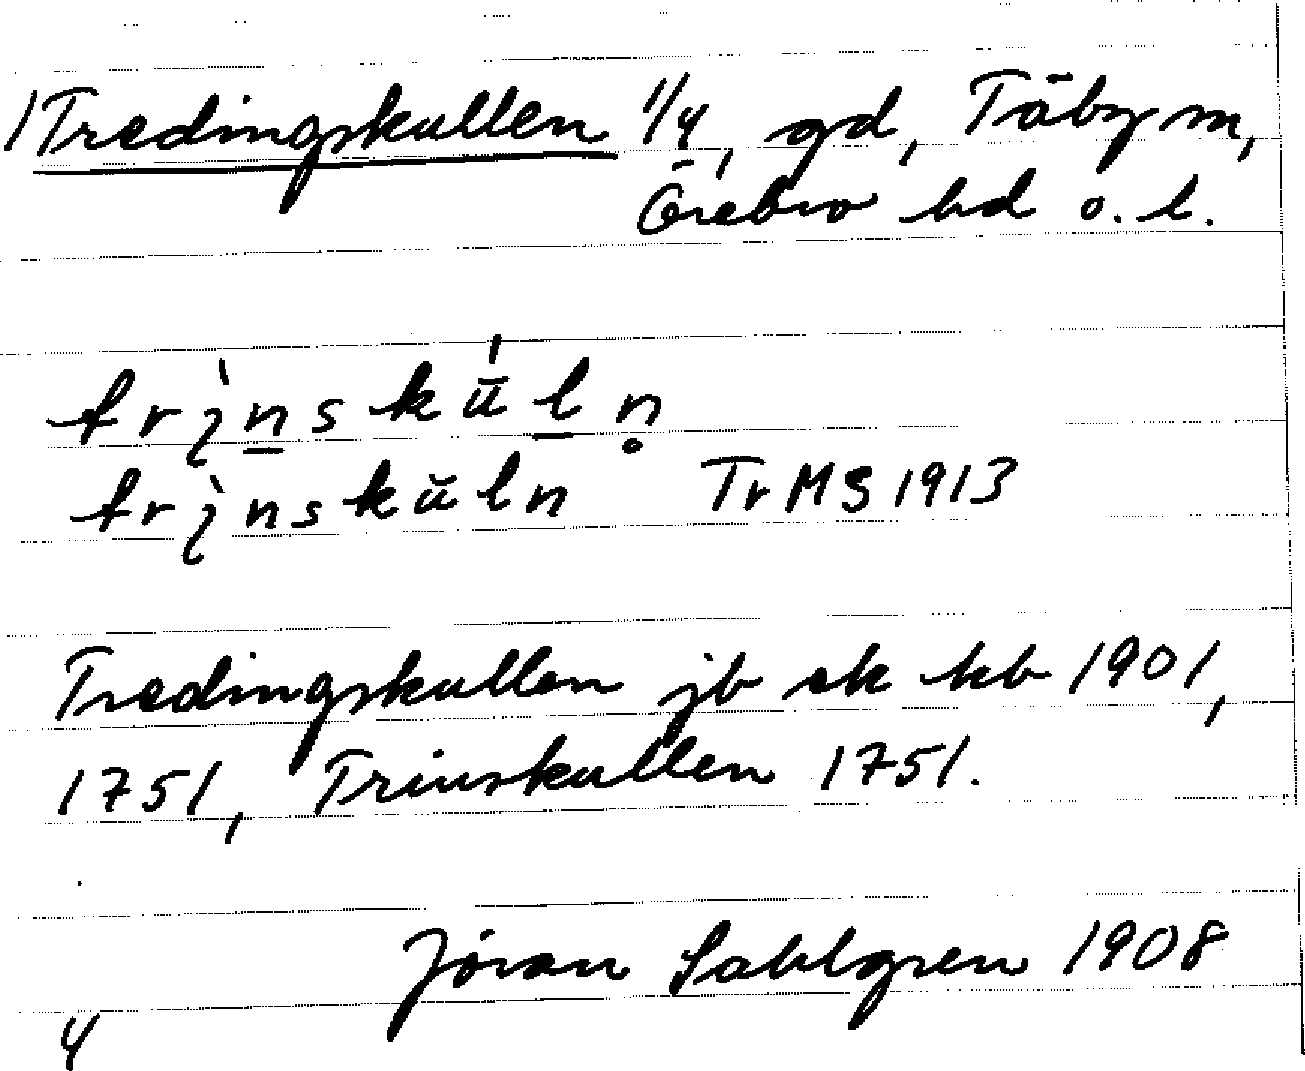 1 Tredingskullen 1/4, gd, Täby sn,
Örebro hd o. l.
trı̨̀nskŭ́ln̥
trı̨̀nskŭln TrMS 1913
Tredingskullen jb sk kb 1901,
1751, Trinskullen 1751.
Jöran Sahlgren 1908
4